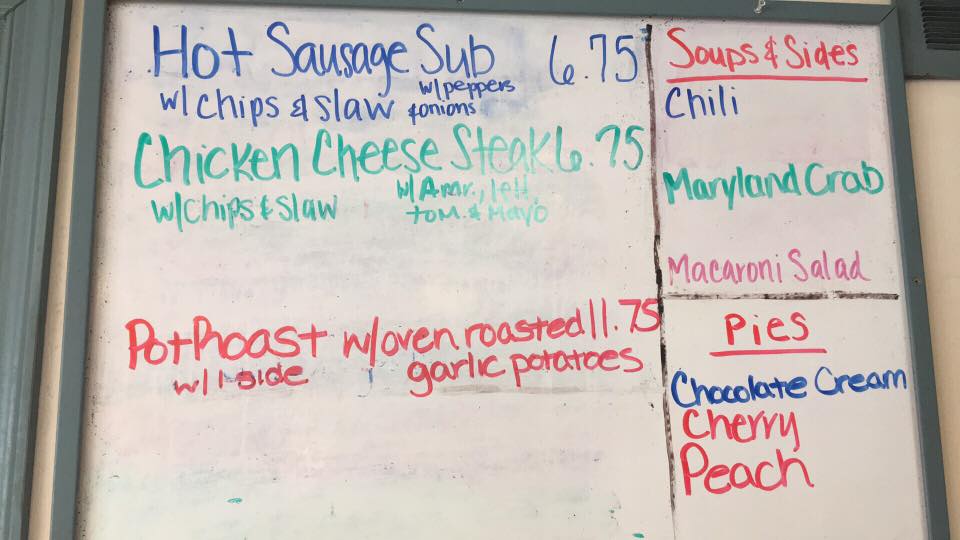 Hot Sausage Sub 6.75
w/ chips & slaw w/peppers
& onions
Chicken Cheese Steak 6.75
w/chips & slaw w/Amr., lett.
tom. & Mayo
Pot Roast w/oven roasted 11.75
w/ 1 side garlic potatoes
Soups & Sides
Chili
Maryland Crab
Macaroni Salad
Pies
Chocolate Cream
Cherry
Peach